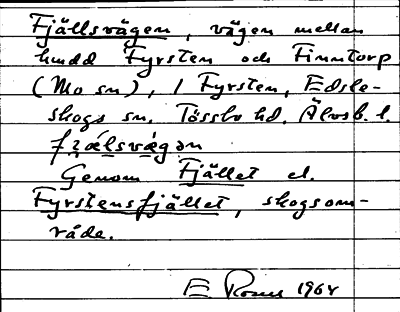 Fjällsvägen, vägen mellan
hmdd Fyrsten och Finntorp
(Mo sn), i Fyrsten, Edsle-
skogs sn. Tössbo hd. Älvsb. l.
Genom Fjället el.
Fyrstensfjället, skogsom-
råde.
E 196